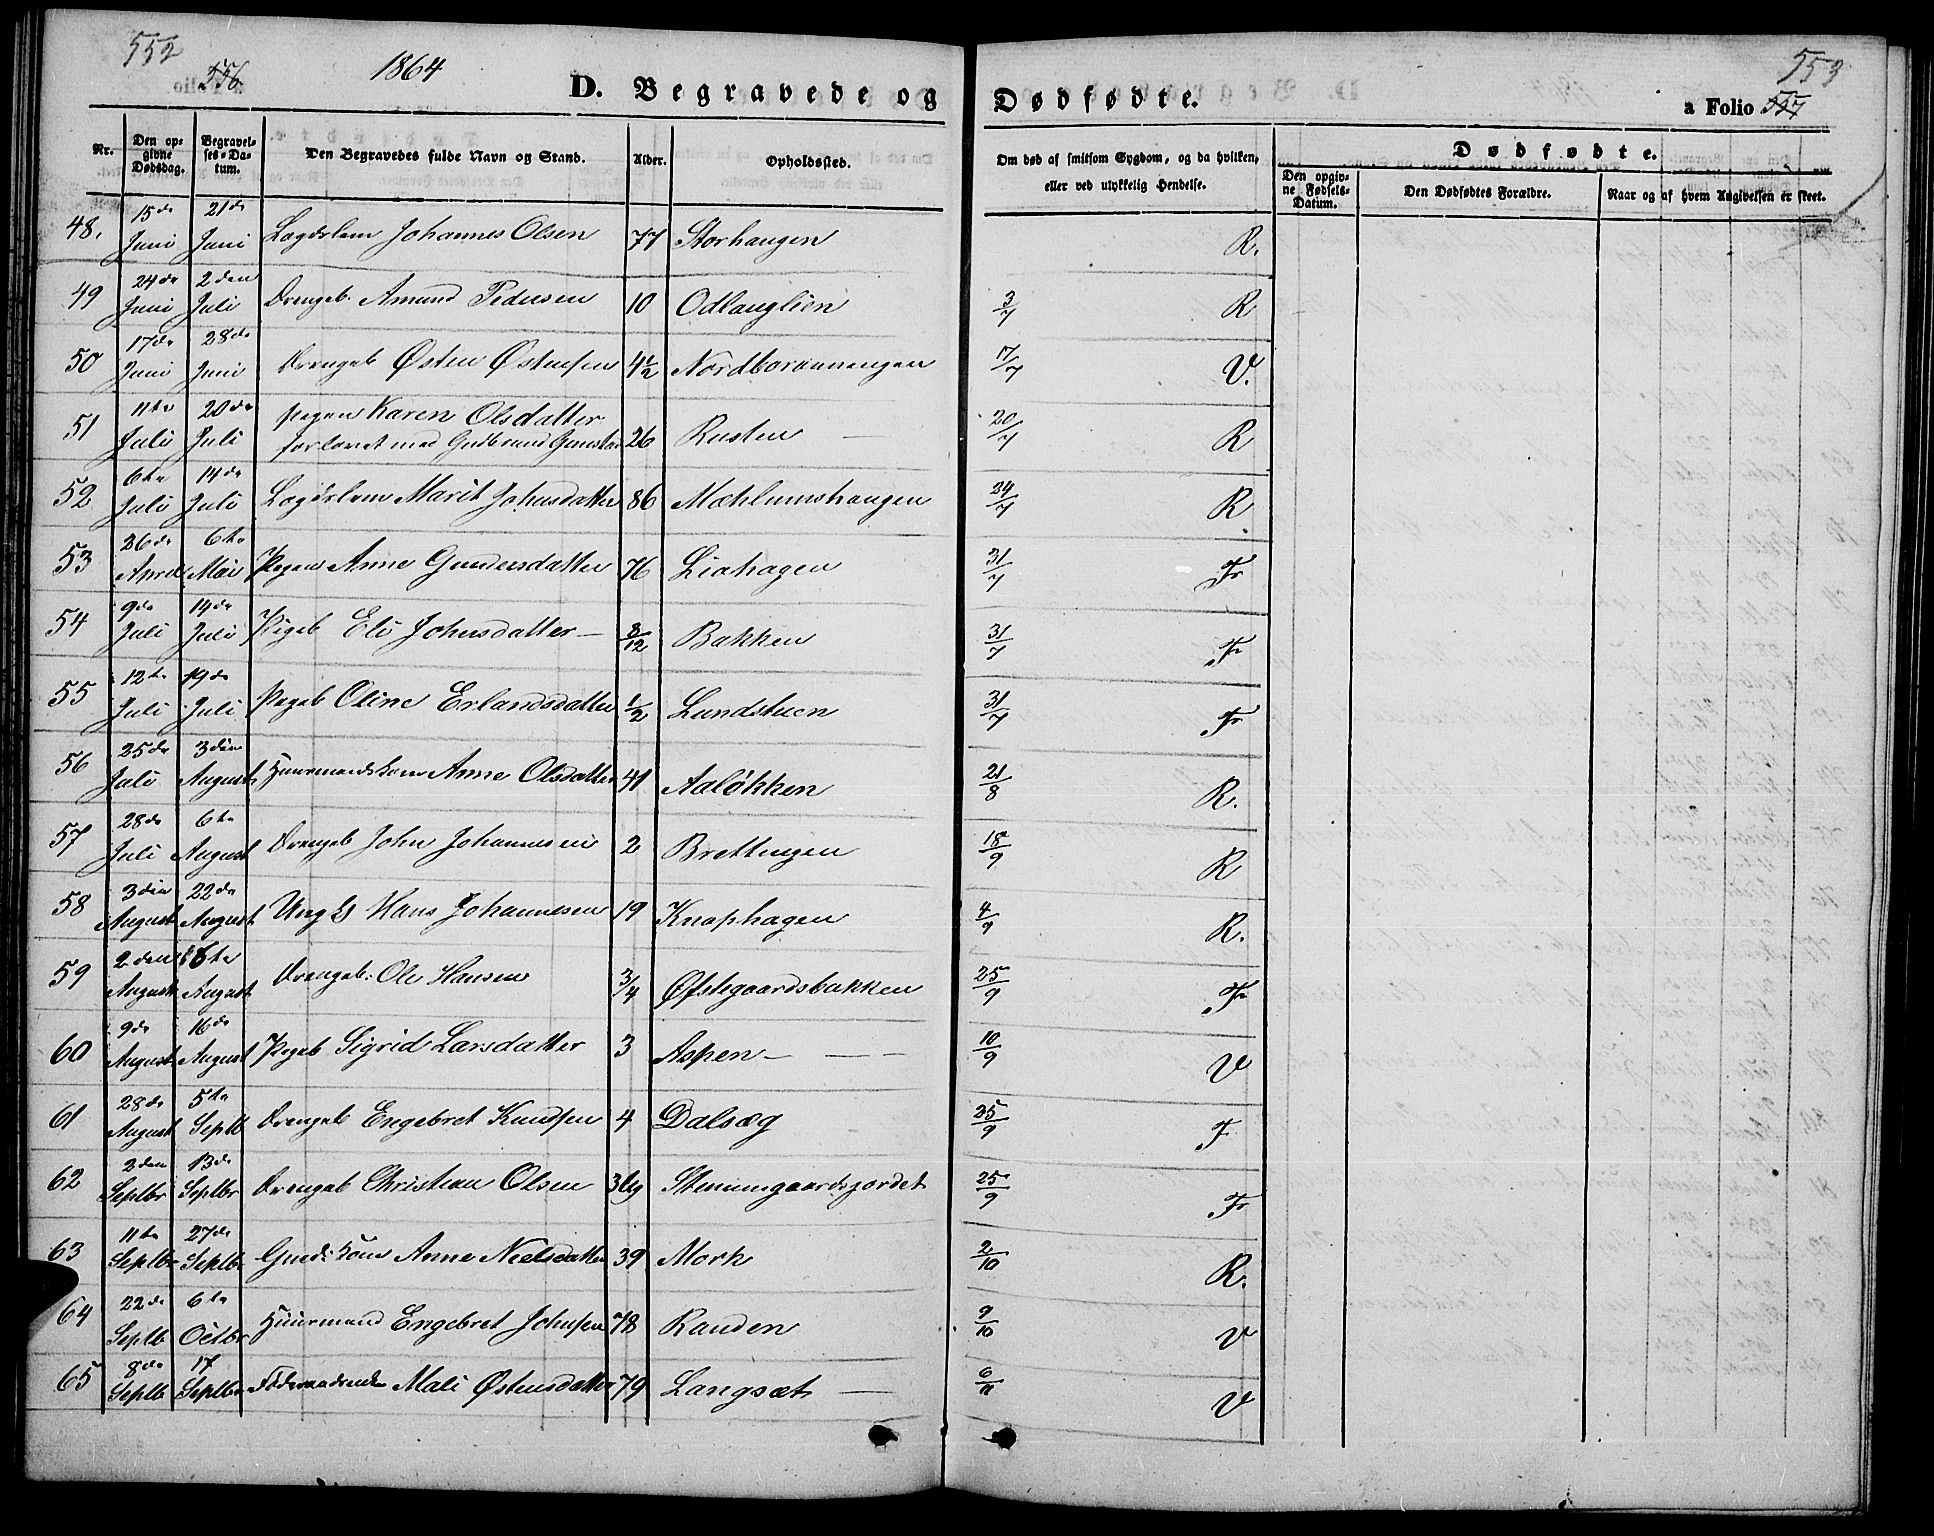 552
556
1864
D. Begravede og
Nr.
Den op-
givne
Dødsdag.
Begravel-
ses-Da-
tum.
Den Begravedes fulde Navn og Stand.
Alder.
Opholdssted.
48. 15de Juni 21de Juni Lægdslem Johannes Olsen 77 Storhaugen
49 24de Juni 2den Juli Drengeb. Amund Pedersen 10 Odlauglien
50 17de Juni 28de Juni Drengeb Østen Østensen 4 1/2
51 11te Juli 20de Juli Pigen Karen Olsdatter
forlovet med Gudbrand 26 Rusten —
52 6te Juli 14de Juli Lægdslem Marit Johnsdatter 86 Mæhlumshaugen
53 26de April 6te Mai Pigen Anne Gundersdatter 76 Liahagen
54 9de Juli 14de Juli Pigeb Eli Johnsdatter — 8/12 Bakken
55 12te Juli 19de Juli Pigeb Oline Erlandsdatter 1/2 Lundstuen
56 25de Juli 3die August Huusmandskone Anne Olsdatter 41 Aaløkken
57 28de Juli 6te August Drengeb John Johannesen 2 Brettingen
58 3die August 22de August Ungk Hans Johannesen 19 Knaphagen
59 2den August 6te August Drengeb: Ole Hansen 3/4 Øfstegaardsbakken
60 9de August 16de August Pigeb Sigrid Larsdatter 3 Aspen — —
61 28de August 5te Septb Drengeb Engebret Knudsen 4 Dalsæg
62 2den Septbr 13de Septbr Drengeb Christian Olsen
63 11te Septbr 27de Septbr Gmds: Kone Anne Nielsdatter 39 Mork
64 22de Septb 6te Octbr Huusmand Engebret Johnsen 78 Randen
65 8de Septb 17 Septbr Føderaadsenke Mali Østensdatter 79 Langsæt —
553
Dødfødte.
a Folio 557
Om død af smitsom Sygdom, og da hvilken,
eller ved ulykkelig Hendelse.
Dødfødte.
Den opgiv-
ne Fødsels-
Datum.
Den Dødfødtes Forældre.
Naar og af hvem Angivelsen er skeet.
R.
3/7 R
17/7 V.
20/7 R
24/7 R
31/7 Fr
31/7 Fr
31/7 Fr
21/8 R.
18/9 R
4/9 R.
25/9 Fr
10/9 V
25/9 F
25/9 Fr
2/10 R.
9/10 V
6/11 V